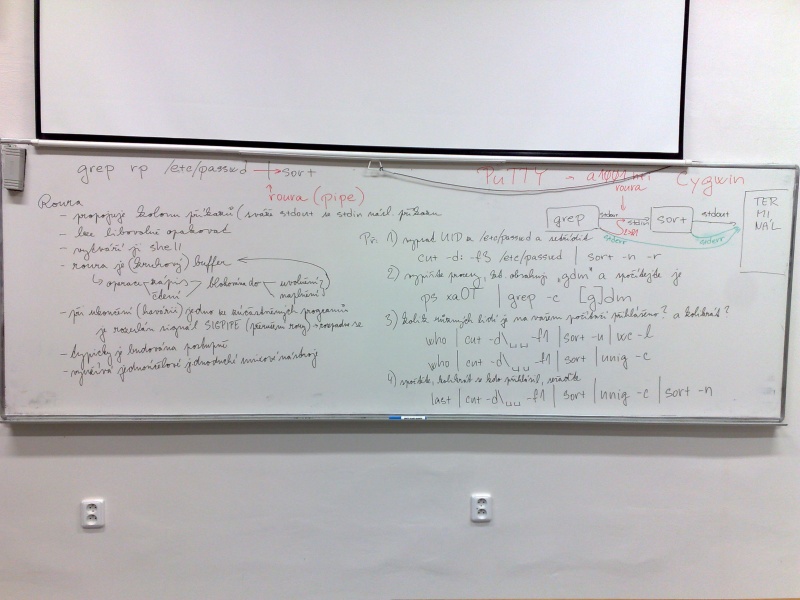 grep rp /etc/passwd → sort
roura (pipe)
Roura
- propojuje kolonu příkazů (sváže stdout se stdin násl. příkazu
- lze libovolně opakovat
- vytváří ji shell
- roura je (kruhový) buffer
operace zápis
čtení
blokována do
uvolnění?
naplnění?
- při ukončení (havárii) jednoho ze zúčastněných programů
je rozeslán signál SIGPIPE (přerušení roury)
- typicky je budována postupně
- využívá jednoúčelové jednoduché unixové nástroje
PuTTY
Cygwin
roura
grep
stdout
stdin
sort
stdout
stderr
stderr
TER
MI
NÁL
Př: 1) vypsat UID z /etc/passwd a setřídit
cut -d: -f3 /etc/passwd | sort -n -r
2) vypište procesy, kt. obsahují "gdm" a spočítejte je
ps xaOT | grep -c [g]dm
3) kolik různých lidí je na vašem počítači přihlášeno? a kolikrát?
who | cut -d\␣␣ -f1 | sort -u | wc -l
who | cut -d\␣␣ -f1 | sort | uniq -c
4) spočtěte, kolikrát se kdo přihlásil, seřaďte
last | cut -d\␣␣ -f1 | sort | uniq -c | sort -n